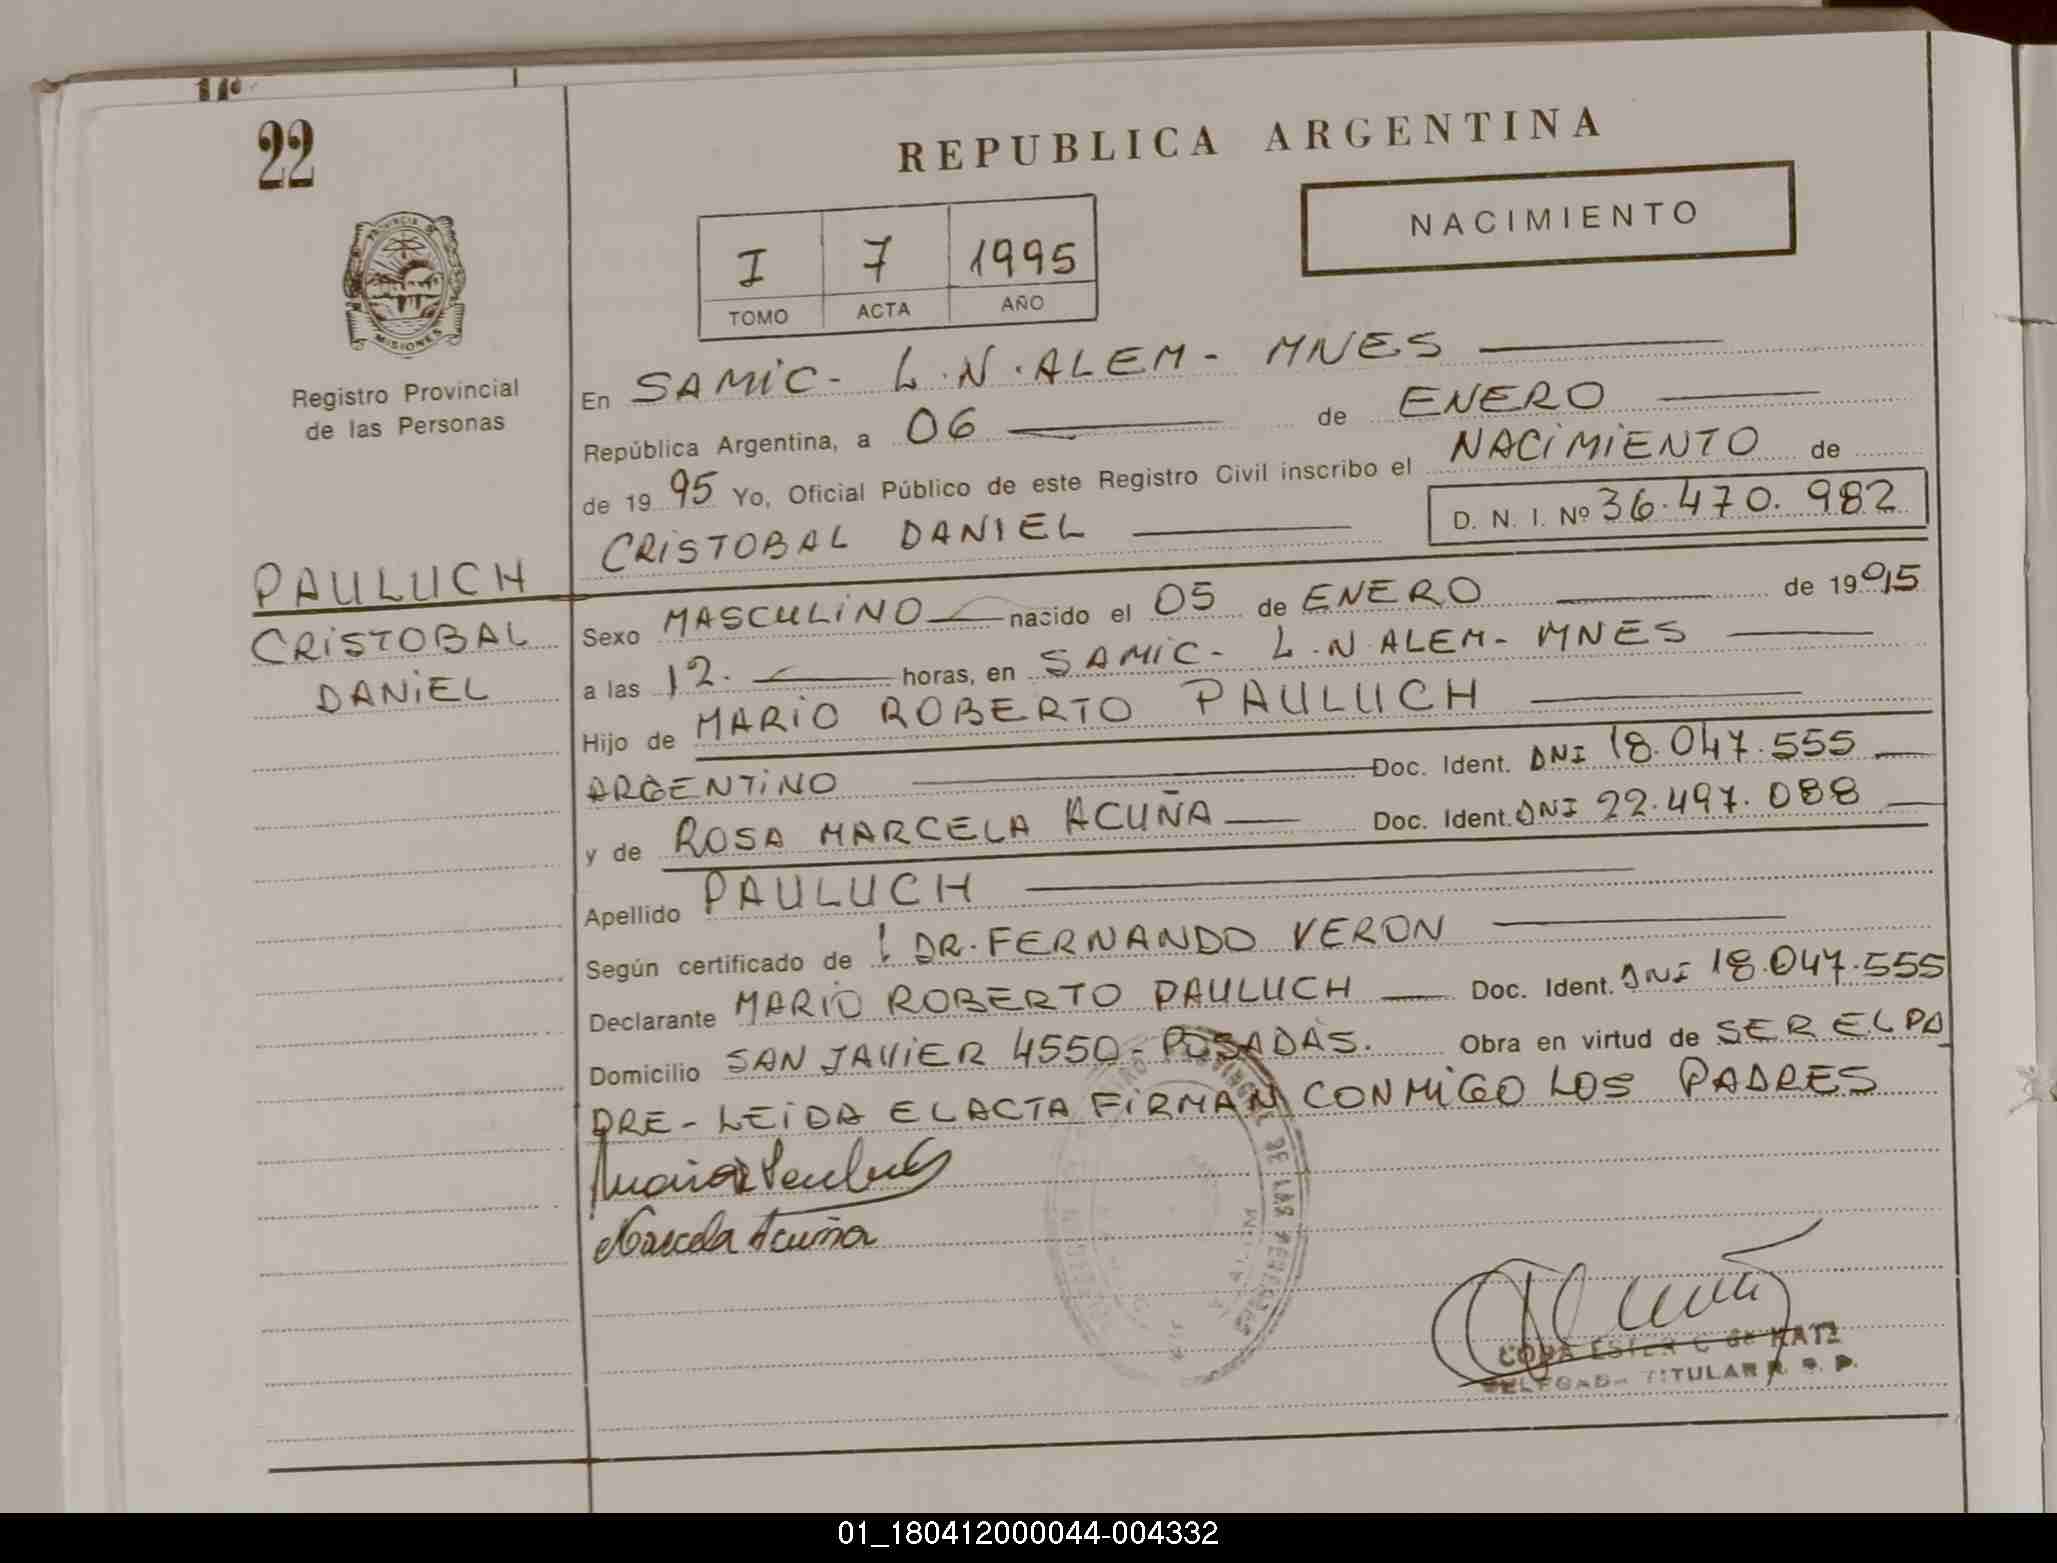 22
REPUBLICA ARGENTINA
NACIMIENTO
I 7 1995
TOMO ACTA AÑO
PROVINCIA DE
MISIONES
Registro Provincial
de las Personas
PAULUCH
CRISTOBAL
DANIEL
En SAMIC - L.N. ALEM - MNES
República Argentina, a 06 de ENERO
de 19 95 Yo, Oficial Público de este Registro Civil inscribo el NACIMIENTO de
CRISTOBAL DANIEL D. N. I. Nº 36.470.982
Sexo MASCULINO nacido el 05 de ENERO de 1995
a las 12. horas, en SAMIC - L.N. ALEM - MNES
Hijo de MARIO ROBERTO PAULUCH
ARGENTINO Doc. Ident. DNI 18.047.555
y de ROSA MARCELA ACUÑA Doc. Ident. DNI 22.497.088
Apellido PAULUCH
Según certificado de DR. FERNANDO VERON
Declarante MARIO ROBERTO PAULUCH Doc. Ident. DNI 18.047.555
Domicilio SAN JAVIER 4550 - POSADAS. Obra en virtud de SER EL PA
DRE - LEIDA EL ACTA FIRMAN CONMIGO LOS PADRES
Marcela Acuña
DE LAS PERSONAS
ESTER C de KATZ
DELEGADA TITULAR R. P. P.
01_180412000044-004332